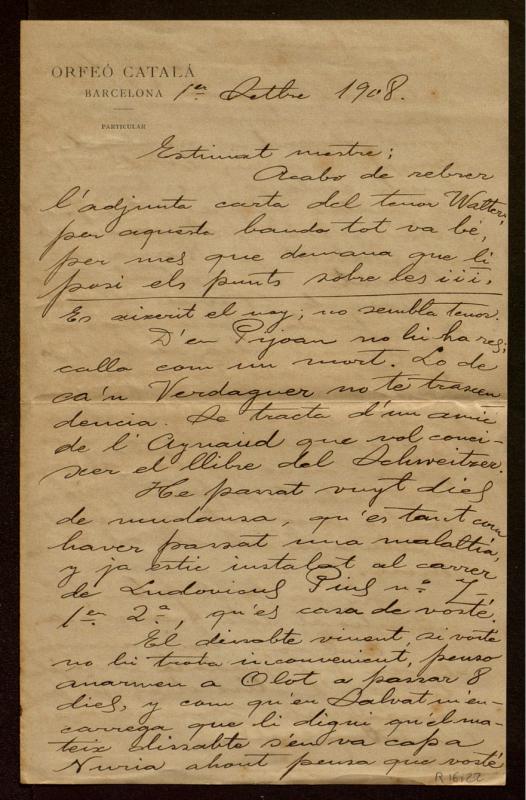 ORFEÓ CATALÁ
BARCELONA
PARTICULAR
1er Setbre 1908.
Estimat mestre;
Acabo de rebrer
l'adjunta carta del tenor Walter;
per aquesta banda tot va bé,
per mes que demana que li
posi els punts sobre les iii.
Es aixerit el noy; no sembla tenor.
D'en Pijoan no hi ha res;
calla com un mort. Lo de
ca'n Verdaguer no té trascen
dencia. Se tracta d'un amic
de l'Aynaud que vol conei-
xer el llibre del Schweitzer.
He passat vuyt dies
de mudansa, qu'es tant com
haver passat una malaltia,
y ja estic instalat al carrer
de Ludovicus Pius nº 7-
1er 2ª, qu'es casa de vosté.
El dissabte vinent, si vosté
no hi troba inconvenient, penso
anarmen a Olot a passar 8
dies, y com qu'en Salvat m'en-
carrega que li digui qu'el ma-
teix dissabte s'en va capa
Nuria ahont pensa que vosté
R 16122